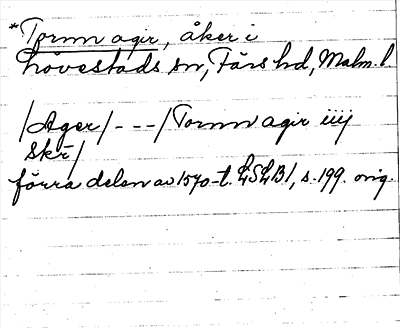 *Tornn agir, åker i
Hövestads sn, Färs hd, Malm. l
/Ager/ - - - / Tornn agir iiij
Skr/
förra delen av 1570-t. LSLB1, s. 199. orig.